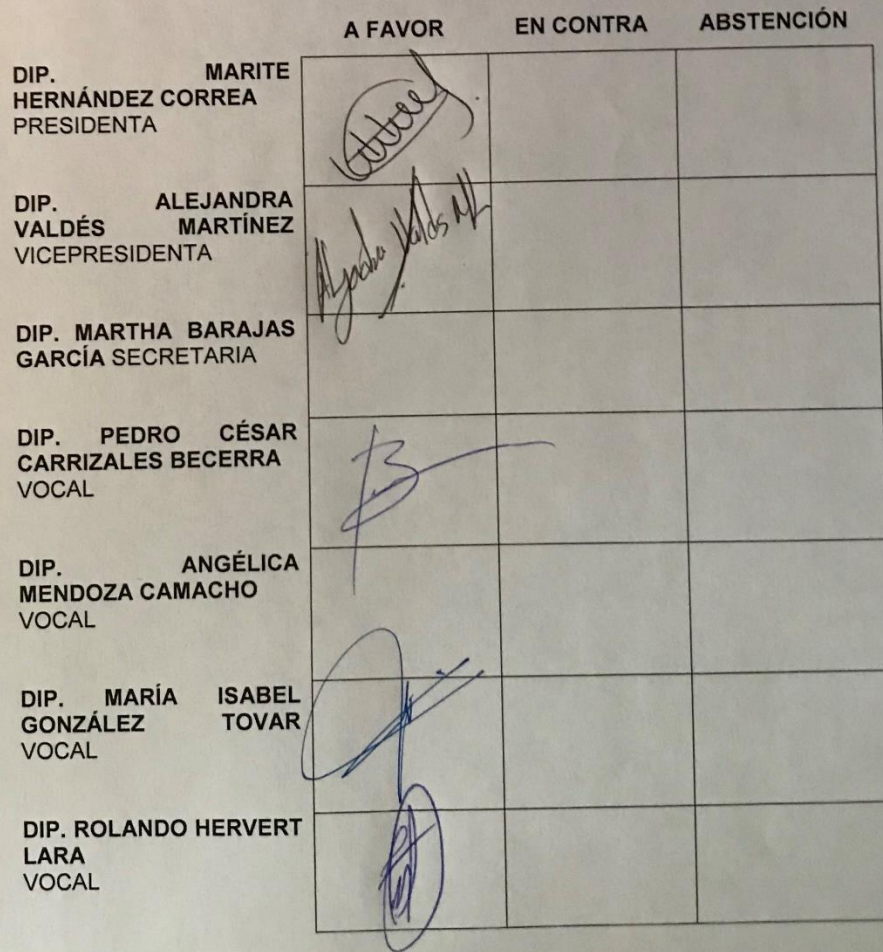 A FAVOR EN CONTRA ABSTENCIÓN
DIP. MARITE
HERNÁNDEZ CORREA
PRESIDENTA
DIP. ALEJANDRA
VALDÉS MARTÍNEZ
VICEPRESIDENTA
DIP. MARTHA BARAJAS
GARCÍA SECRETARIA
DIP. PEDRO CÉSAR
CARRIZALES BECERRA
VOCAL
DIP. ANGÉLICA
MENDOZA CAMACHO
VOCAL
DIP. MARÍA ISABEL
GONZÁLEZ TOVAR
VOCAL
DIP. ROLANDO HERVERT
LARA
VOCAL